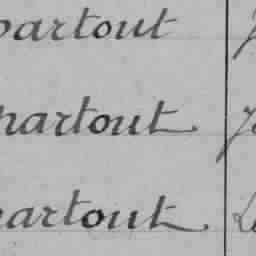 partout
partout
partout